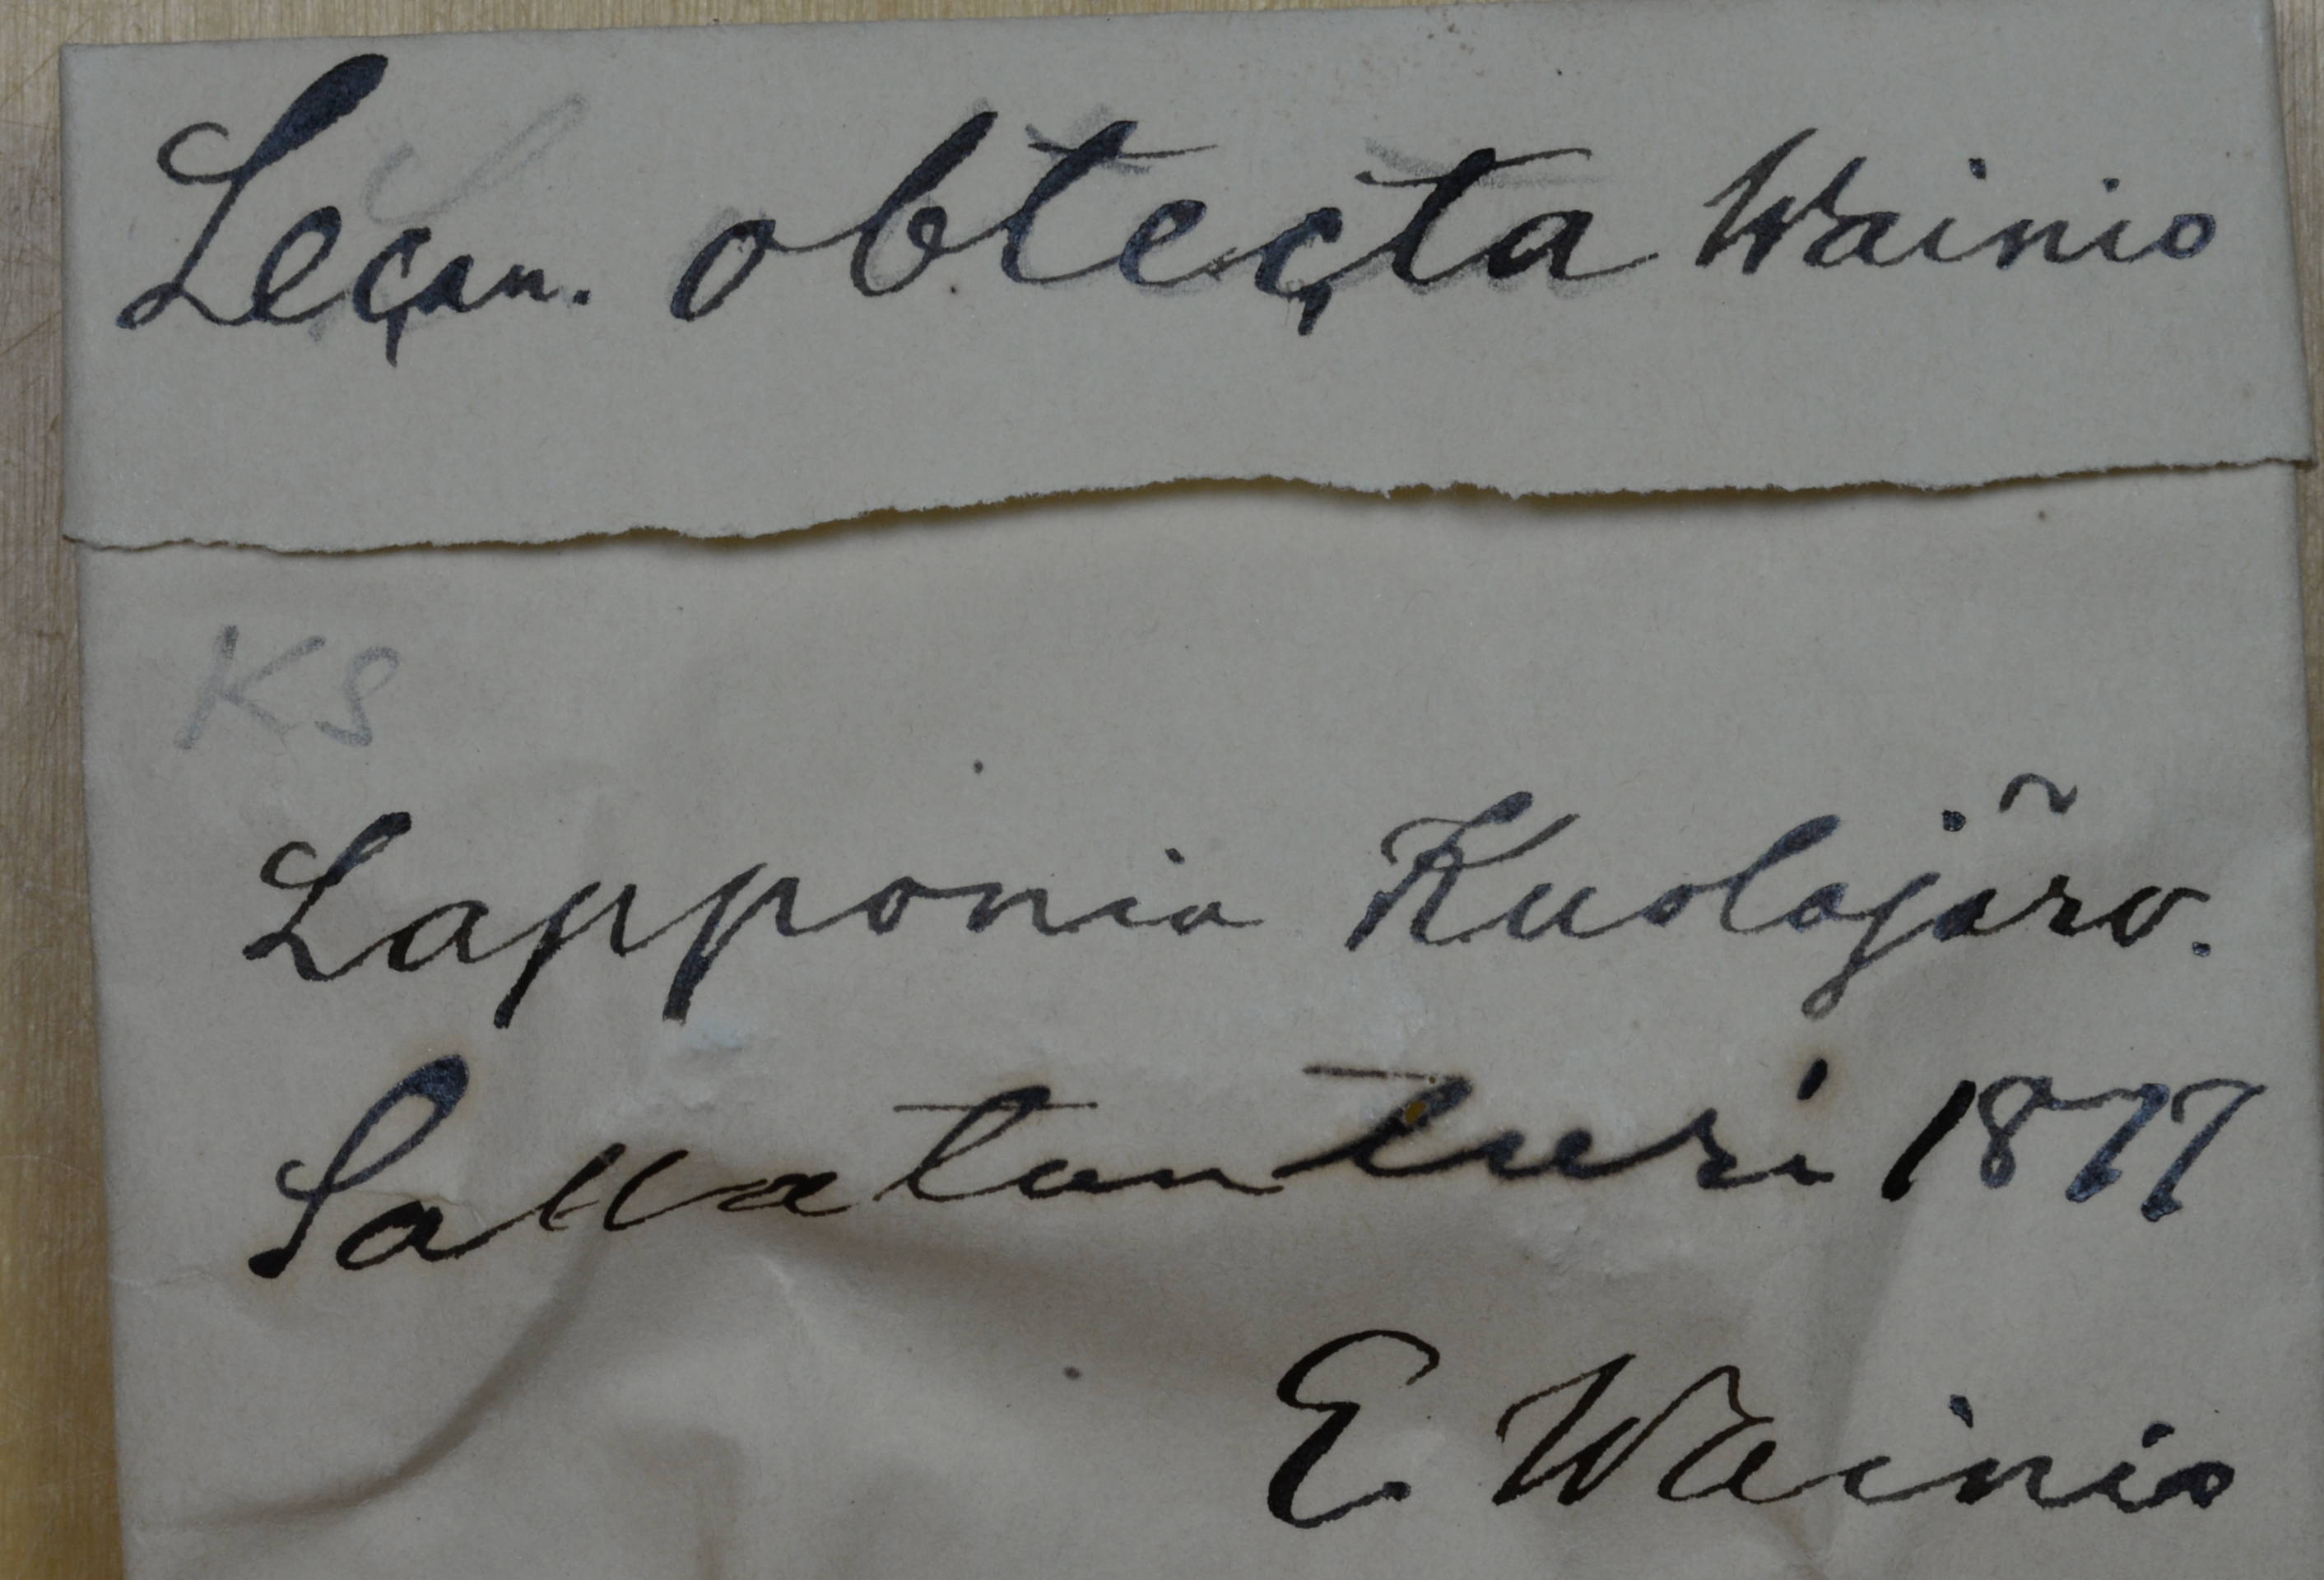 Leçan. obteçta Wainio
KS
Lapponia Kuolajärv.
Sallatunturi 1877
E. Wainio